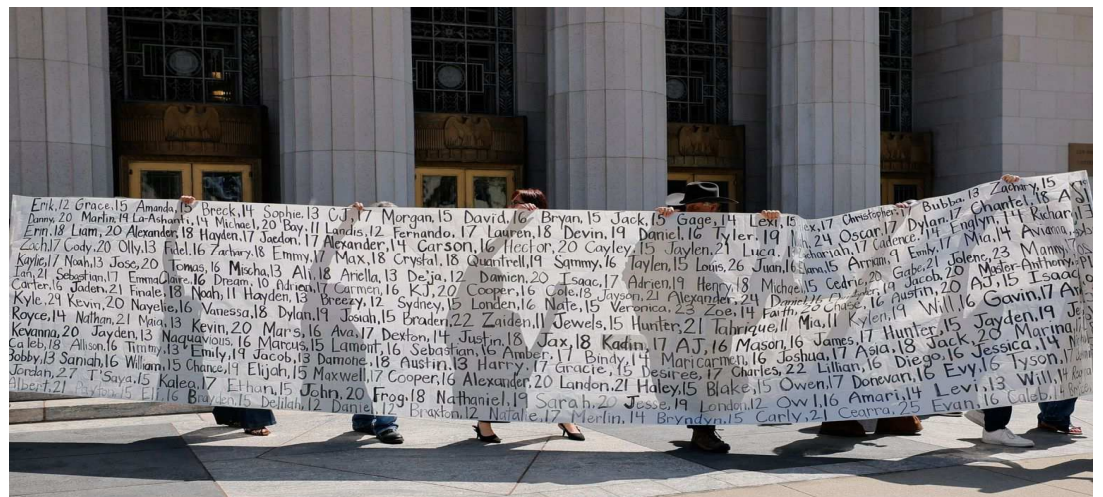 Erik,12 Grace,15 Amanda,15 Breck,14 Sophie,13 CJ,17 Morgan,15 David,16 Bryan,15 Jack,15 Gage,14 Lexi,15 Christopher,17 Bubba,13 Zachary,15
Danny,20 Martin,19 La-Ashanti,14 Michael,20 Bay,11 Landis,12 Fernando,17 Lauren,18 Devin,19 Daniel,16 Tyler,19 24 Oscar,17 Dylan,17 Chantel,18
Erin,18 Liam,20 Alexander,18 Hayden,17 Jaedon,17 Alexander,14 Carson,16 Hector,20 Cayley,15 Jaylen,21 Luca, 17 Cadence,14 Englyn,14 Richard,
Zach,17 Cody,20 Olly,13 Fidel,16 Zachary,18 Emmy, Max,18 Crystal,18 Quantrell,19 Sammy,16 Taylen,15 Louis,26 Juan,16 15 Arriam,9 Emily,17 Mia,14
Kaylie,17 Noah,13 Jose,20 Tomas,16 Mischa,13 Ali,18 Ariella,13 De'ja,12 Damien,20 Isaac,17 Adrien,19 Henry,18 Michael,15 Cedric, Gabe,21 Jolene,23 Manny,
Ian,21 Sebastian,17 EmmaClaire,16 Dream,10 Adrien,17 Carmen,16 KJ,22 Cooper,16 Cole,18 Jayson,21 Alexander,24 Daniel,16 Austin,20 Jacob,19 Master-Anthony,
Carter,16 Jaden,21 Finale,18 Noah,11 Hayden,13 Breezy,12 Sydney,15 Londen,16 Nate,15 Veronica,23 Zoe,14 Faith,20 Kylen,19 Will,16 AJ,15 Isaac
Kyle,29 Kevin,20 Nayelie,16 Vanessa,18 Dylan,19 Josiah,15 Braden,22 Zaiden,11 Jewels,15 Hunter,21 Tahrique,11 Mia,11 Gavin,17
Royce,14 Nathan,21 Maia,13 Kevin,20 Mars,16 Ava,17 Dexton,14 Justin,18 Jax,18 Kadin,17 AJ,16 Mason,16 James,17 Hunter,15 Jayden,19
Kevanna,20 Jayden,13 Naquavious,16 Marcus,15 Lamont,16 Sebastian,16 Amber,17 Bindy,14 Maricarmen,16 Joshua,17 Asia,18 Jack,20 Marina,
Caleb,18 Allison,16 Timmy,13 Emily,19 Jacob,13 Damone,18 Austin,13 Harry,17 Gracie,15 Desiree,17 Charles,22 Lillian,16 Diego,16 Jessica,14
Bobby,13 Saniah,16 William,15 Chance,19 Elijah,15 Maxwell,17 Cooper,16 Alexander,20 Landon,21 Haley,15 Blake,15 Owen,17 Donevan,16 Evy,17 Tyson,17
Jordan,27 T'Saya,15 Kalea,17 Ethan,15 John,20 Frog,18 Nathaniel,19 Sarah,20 Jesse,19 London,12 Owl,16 Amari,14 Levi,13 Will,14
Albert,21 15 Eli,16 Brayden,15 Delilah,12 Daniel,12 Braxton,12 Natalie,17 Merlin,14 Bryndyn,15 Carly,21 Cearra,25 Evan,16 Caleb,14